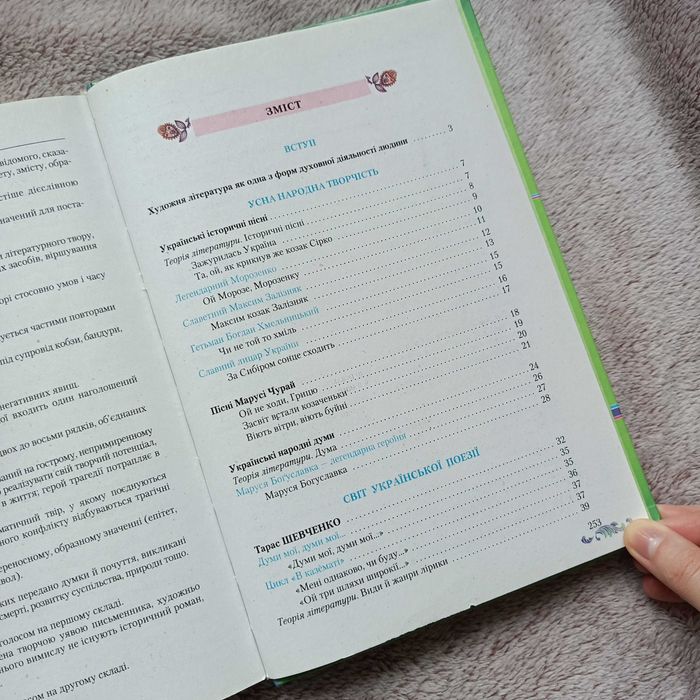 відомого, сказа-
ету, змісту, обра-
тіше дієслівною
начений для поста-
і літературного твору,
их засобів, віршування
орі стосовно умов і часу
ується частинами повторами
під супровід кобзи, бандури,
негативних явищ.
ої входить один наголошений
вох до восьми рядків, об'єднаних
аний на гострому, непримиренному
реалізувати свій творчий потенціал,
в життя; герої трагедії потрапляє в
матичний твір, у якому поєднуються
ного конфлікту відбуваються трагічні
ереносному, образному значенні (епітет,
вол).
ких передано думки й почуття, викликані
смерті, розвитку суспільства, природи тощо.
олосом на першому складі.
ена творчою уявою письменника, художньо
нього вимислу не існують історичний роман,
ом на другому складі.
ЗМІСТ
ВСТУП
Художня література як одна з форм духовної діяльності людини 3
УСНА НАРОДНА ТВОРЧІСТЬ
Українські історичні пісні 7
Теорія літератури. Історичні пісні 7
Зажурилась Україна 8
Та, ой, як крикнув же козак Сірко 9
Легендарний Морозенко 10
Ой Морозе, Морозенку 11
Славетний Максим Залізняк 12
Максим козак Залізняк 13
Гетьман Богдан Хмельницький 15
Чи не той то хміль 15
Славний лицар України 16
За Сибіром сонце сходить 17
Пісні Марусі Чурай 18
Ой не ходи, Грицю 19
Засвіт встали козаченьки 20
Віють вітри, віють буйні 21
Українські народні думи 24
Теорія літератури. Дума 26
Маруся Богуславка – легендарна героїня 27
Маруся Богуславка 28
СВІТ УКРАЇНСЬКОЇ ПОЕЗІЇ
Тарас ШЕВЧЕНКО 32
Думи мої, думи мої... 35
«Думи мої, думи мої...» 35
Цикл «В казематі» 36
«Мені однаково, чи буду...» 37
«Ой три шляхи широкії...» 37
Теорія літератури. Види й жанри лірики 39
253